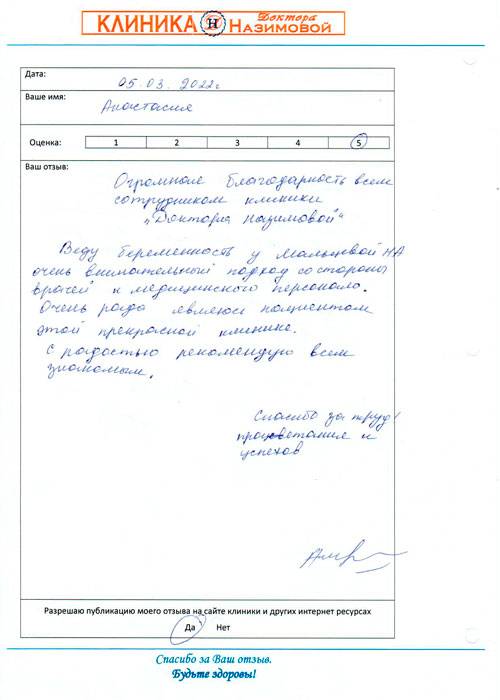 КЛИНИКА Н Доктора НАЗИМОВОЙ
Дата: 05.03.2022г
Ваше имя: Анастасия
Оценка: 1 2 3 4 5
Ваш отзыв:
Огромная благодарность всем
сотрудникам клиники
"Доктора Назимовой"
Веду беременность у Мальцевой НА
очень внимательный подход со стороны
врачей и медицинского персонала.
Очень рада являюсь пациентом
этой прекрасной клинике.
С радостью рекомендую всем
знакомым.
Спасибо за труд!
процветания и
успехов
Разрешаю публикацию моего отзыва на сайте клиники и других интернет ресурсах
Да Нет
Спасибо за Ваш отзыв.
Будьте здоровы!